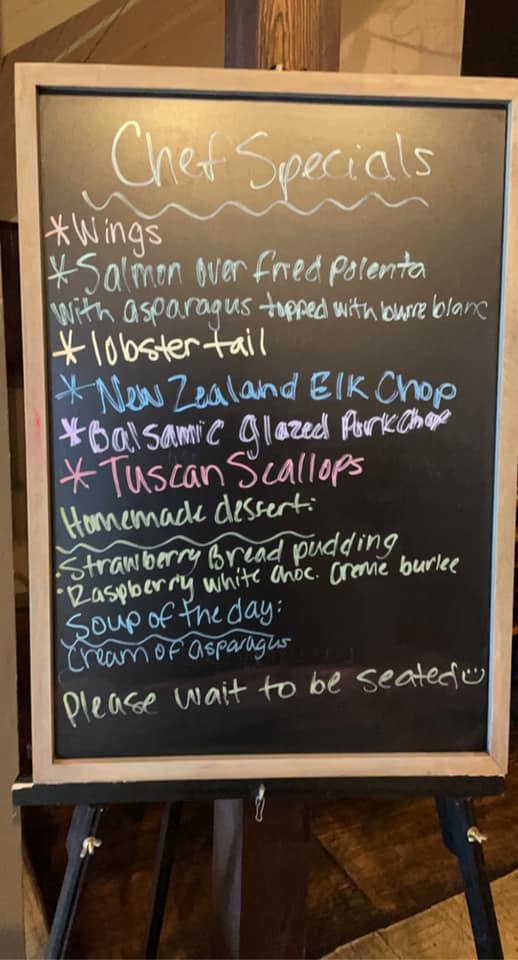 Chef Specials
*Wings
*Salmon over fried polenta
with asparagus topped with burre blanc
*lobster tail
*New Zealand Elk Chop
*Balsamic glazed Pork Chop
*Tuscan Scallops
Homemade dessert:
·Strawberry Bread pudding
·Raspberry white choc. creme burlee
Soup of the day:
Cream of asparagus
Please wait to be seated☺